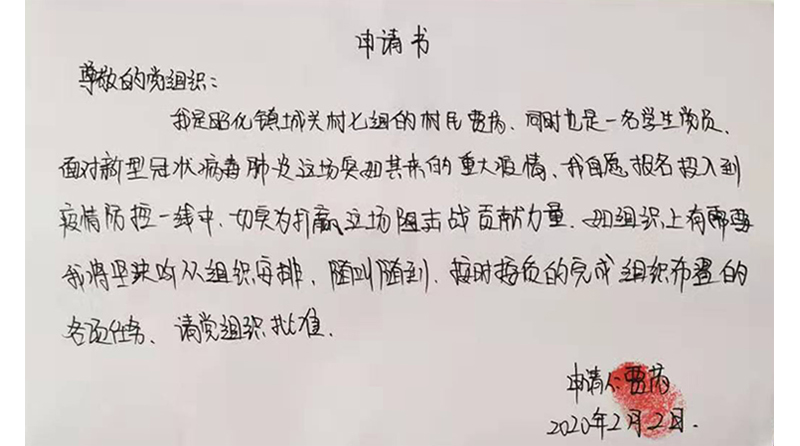 申请书
尊敬的党组织：
我是昭化镇城关村七组的村民贾芮、同时也是一名学生党员、
面对新型冠状病毒肺炎这场突如其来的重大疫情、我自愿报名投入到
疫情防控一线中、切实为打赢这场阻击战贡献力量、如组织上有需要
我将坚决听从组织安排、随叫随到、按时按质的完成组织布置的
各项任务、请党组织批准.
申请人:贾芮
2020年2月2日.